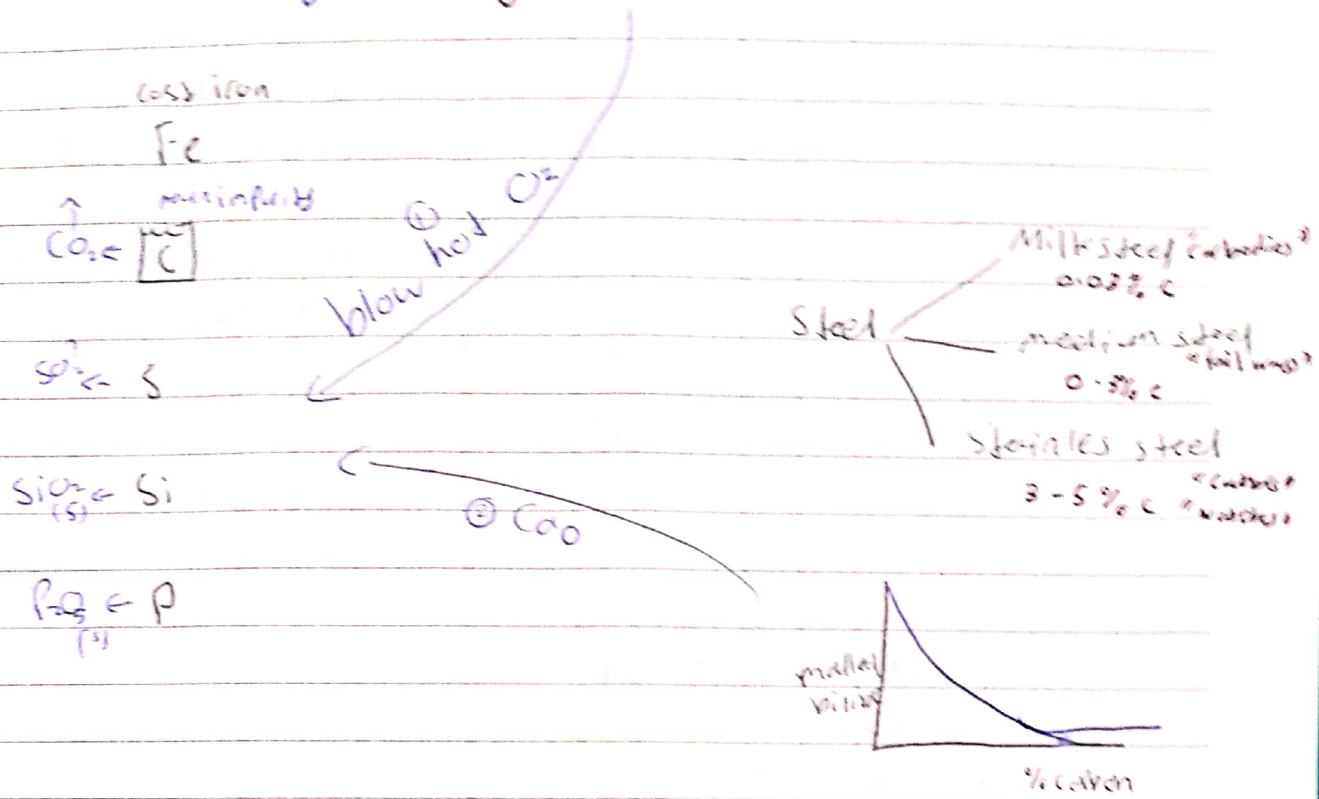 cast iron
Fe
main impurity
CO2 ← C
① blow hot O2
SO2 ← S
SiO2 ← Si
(s)
② CaO
P2O5 ← P
(s)
Steel
Steel "carbodies"
0.03% C
medium steel
0.3% C
stainles steel
3-5% C "watches"
malleability
% carbon